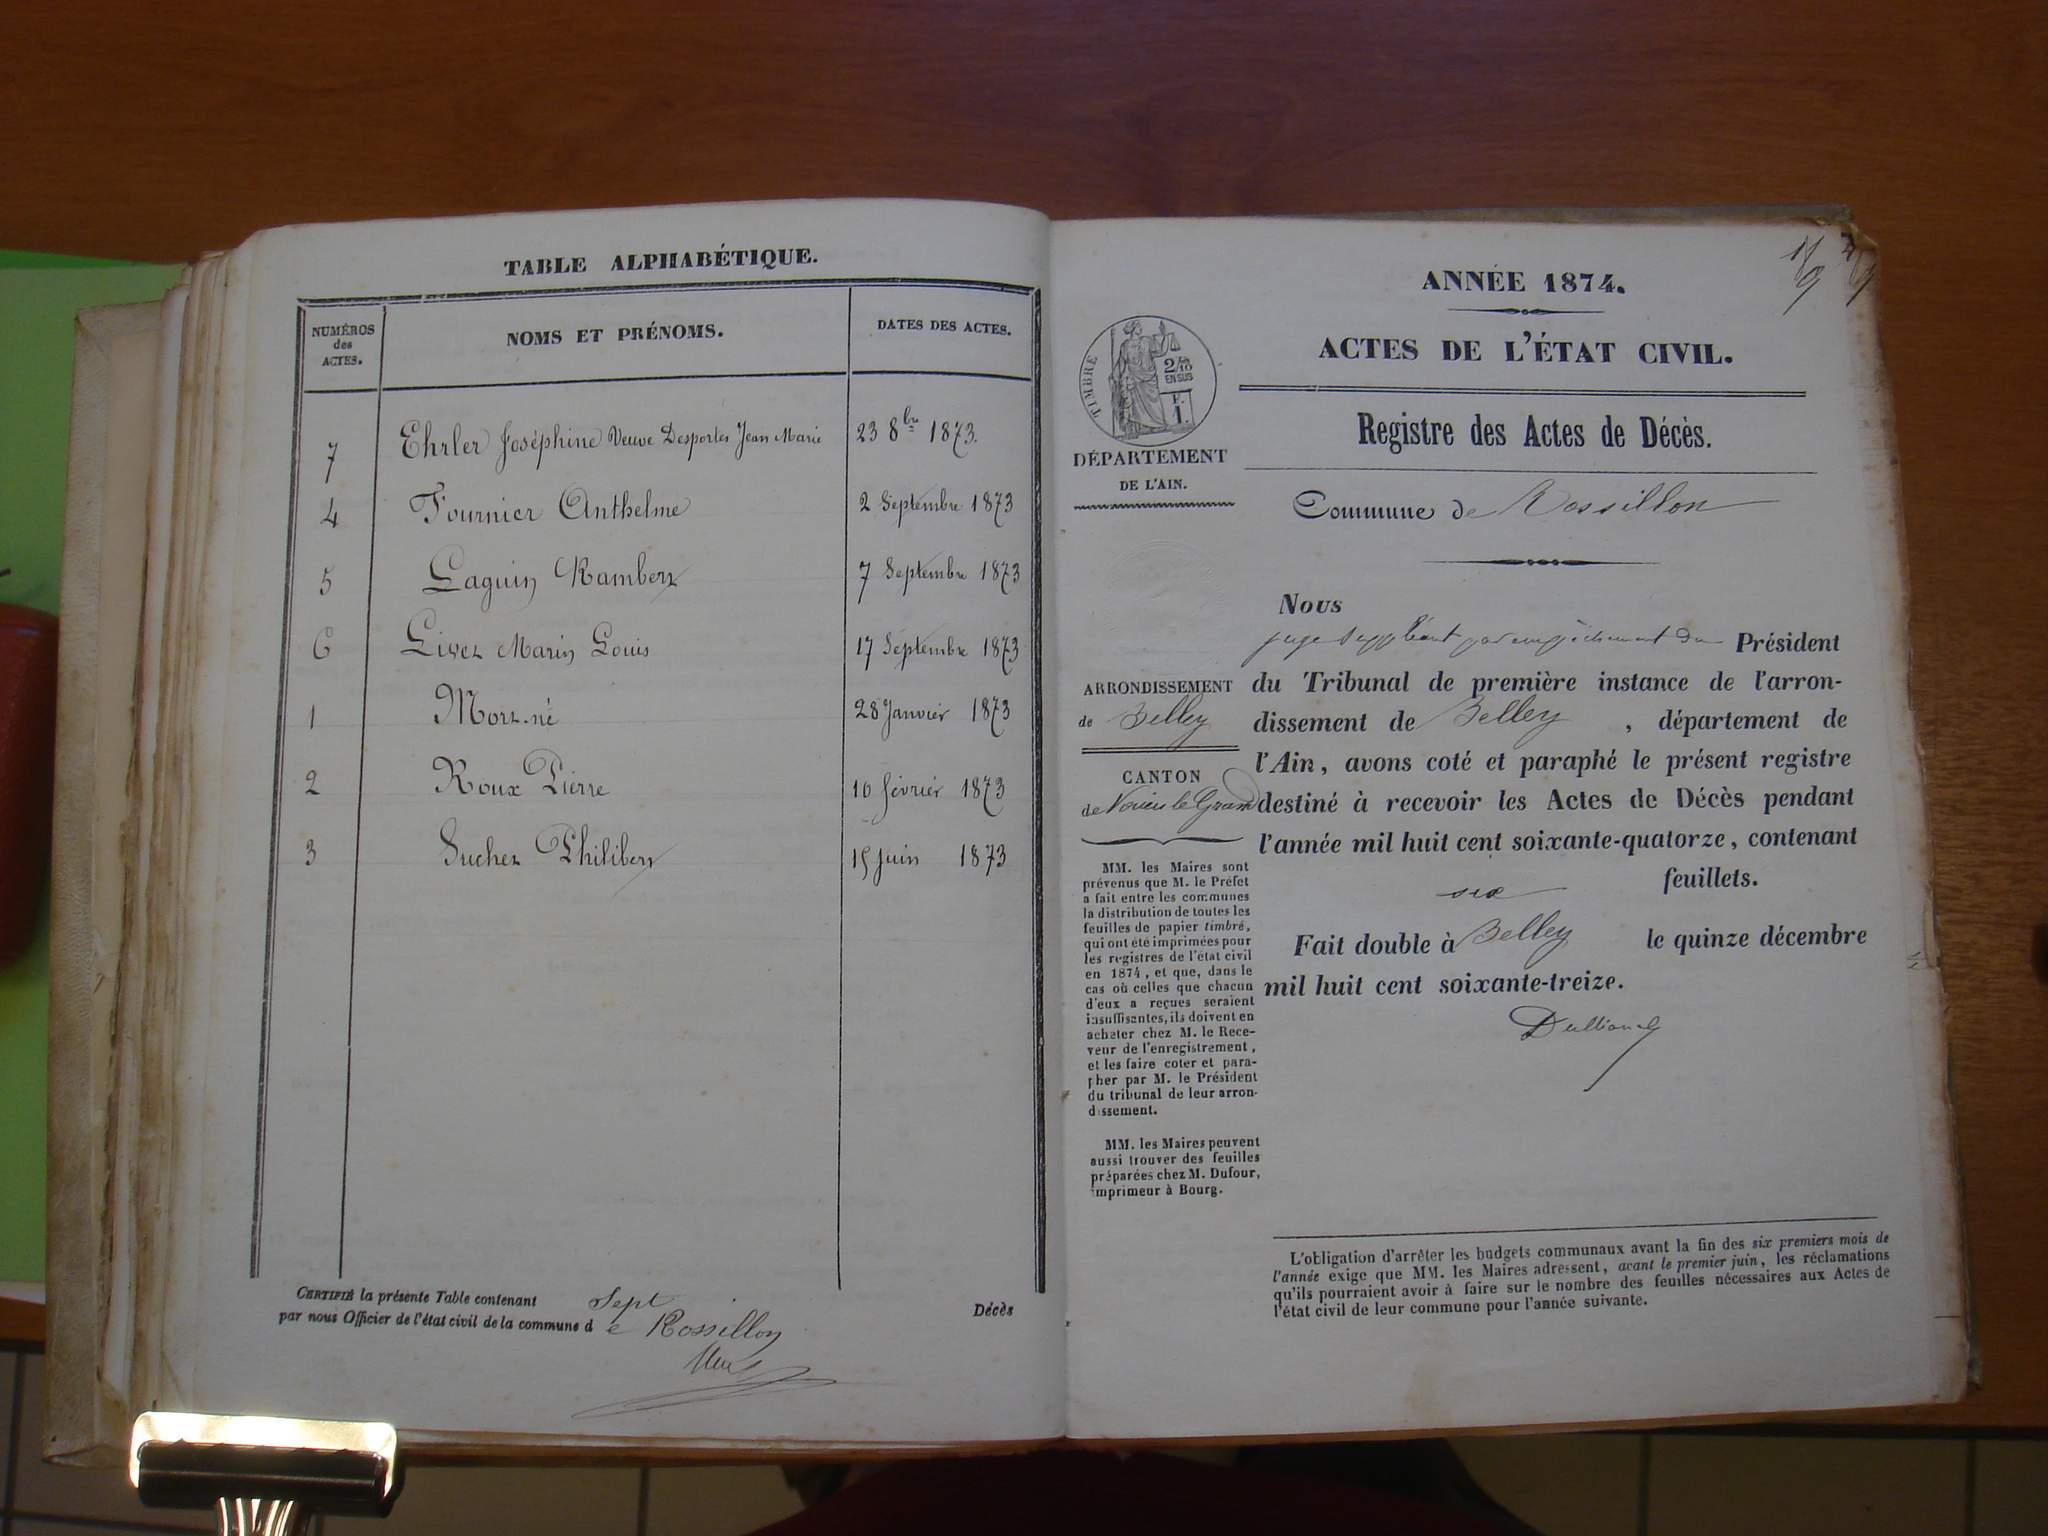 TABLE ALPHABÉTIQUE.
NUMÉROS des ACTES.
NOMS ET PRÉNOMS.
DATES DES ACTES.
7 Ehrler Joséphine Veuve Desportes Jean Marie 23 8bre 1873.
4 Fournier Anthelme 2 Septembre 1873
5 Laguin Rambert 7 Septembre 1873
6 Livet Marin Louis 17 Septembre 1873
1 Mort-né 28 Janvier 1873
2 Roux Pierre 10 février 1873
3 Suchet Philibert 15 Juin 1873
CERTIFIÉ la présente Table contenant Sept Décès
par nous Officier de l'état civil de la commune de Rossillon
1/9
ANNÉE 1874.
ACTES DE L'ÉTAT CIVIL.
Registre des Actes de Décès.
TIMBRE
2/10
EN SUS
F.
1.
DÉPARTEMENT
DE L'AIN.
Commune de Rossillon
Nous
juge suppléant par empêchement du Président
du Tribunal de première instance de l'arron-
dissement de Belley, département de
l'Ain, avons coté et paraphé le présent registre
destiné à recevoir les Actes de Décès pendant
l'année mil huit cent soixante-quatorze, contenant
six feuillets.
Fait double à Belley le quinze décembre
mil huit cent soixante-treize.
ARRONDISSEMENT
de Belley
CANTON
de Virieu le Grand
MM. les Maires sont
prévenus que M. le Préfet
a fait entre les communes
la distribution de toutes les
feuilles de papier timbré,
qui ont été imprimées pour
les registres de l'état civil
en 1874, et que, dans le
cas où celles que chacun
d'eux a reçues seraient
insuffisantes, ils doivent en
acheter chez M. le Rece-
veur de l'enregistrement,
et les faire coter et para-
pher par M. le Président
du tribunal de leur arron-
dissement.
MM. les Maires peuvent
aussi trouver des feuilles
préparées chez M. Dufour,
imprimeur à Bourg.
L'obligation d'arrêter les budgets communaux avant la fin des six premiers mois de
l'année exige que MM. les Maires adressent, avant le premier juin, les réclamations
qu'ils pourraient avoir à faire sur le nombre des feuilles nécessaires aux Actes de
l'état civil de leur commune pour l'année suivante.